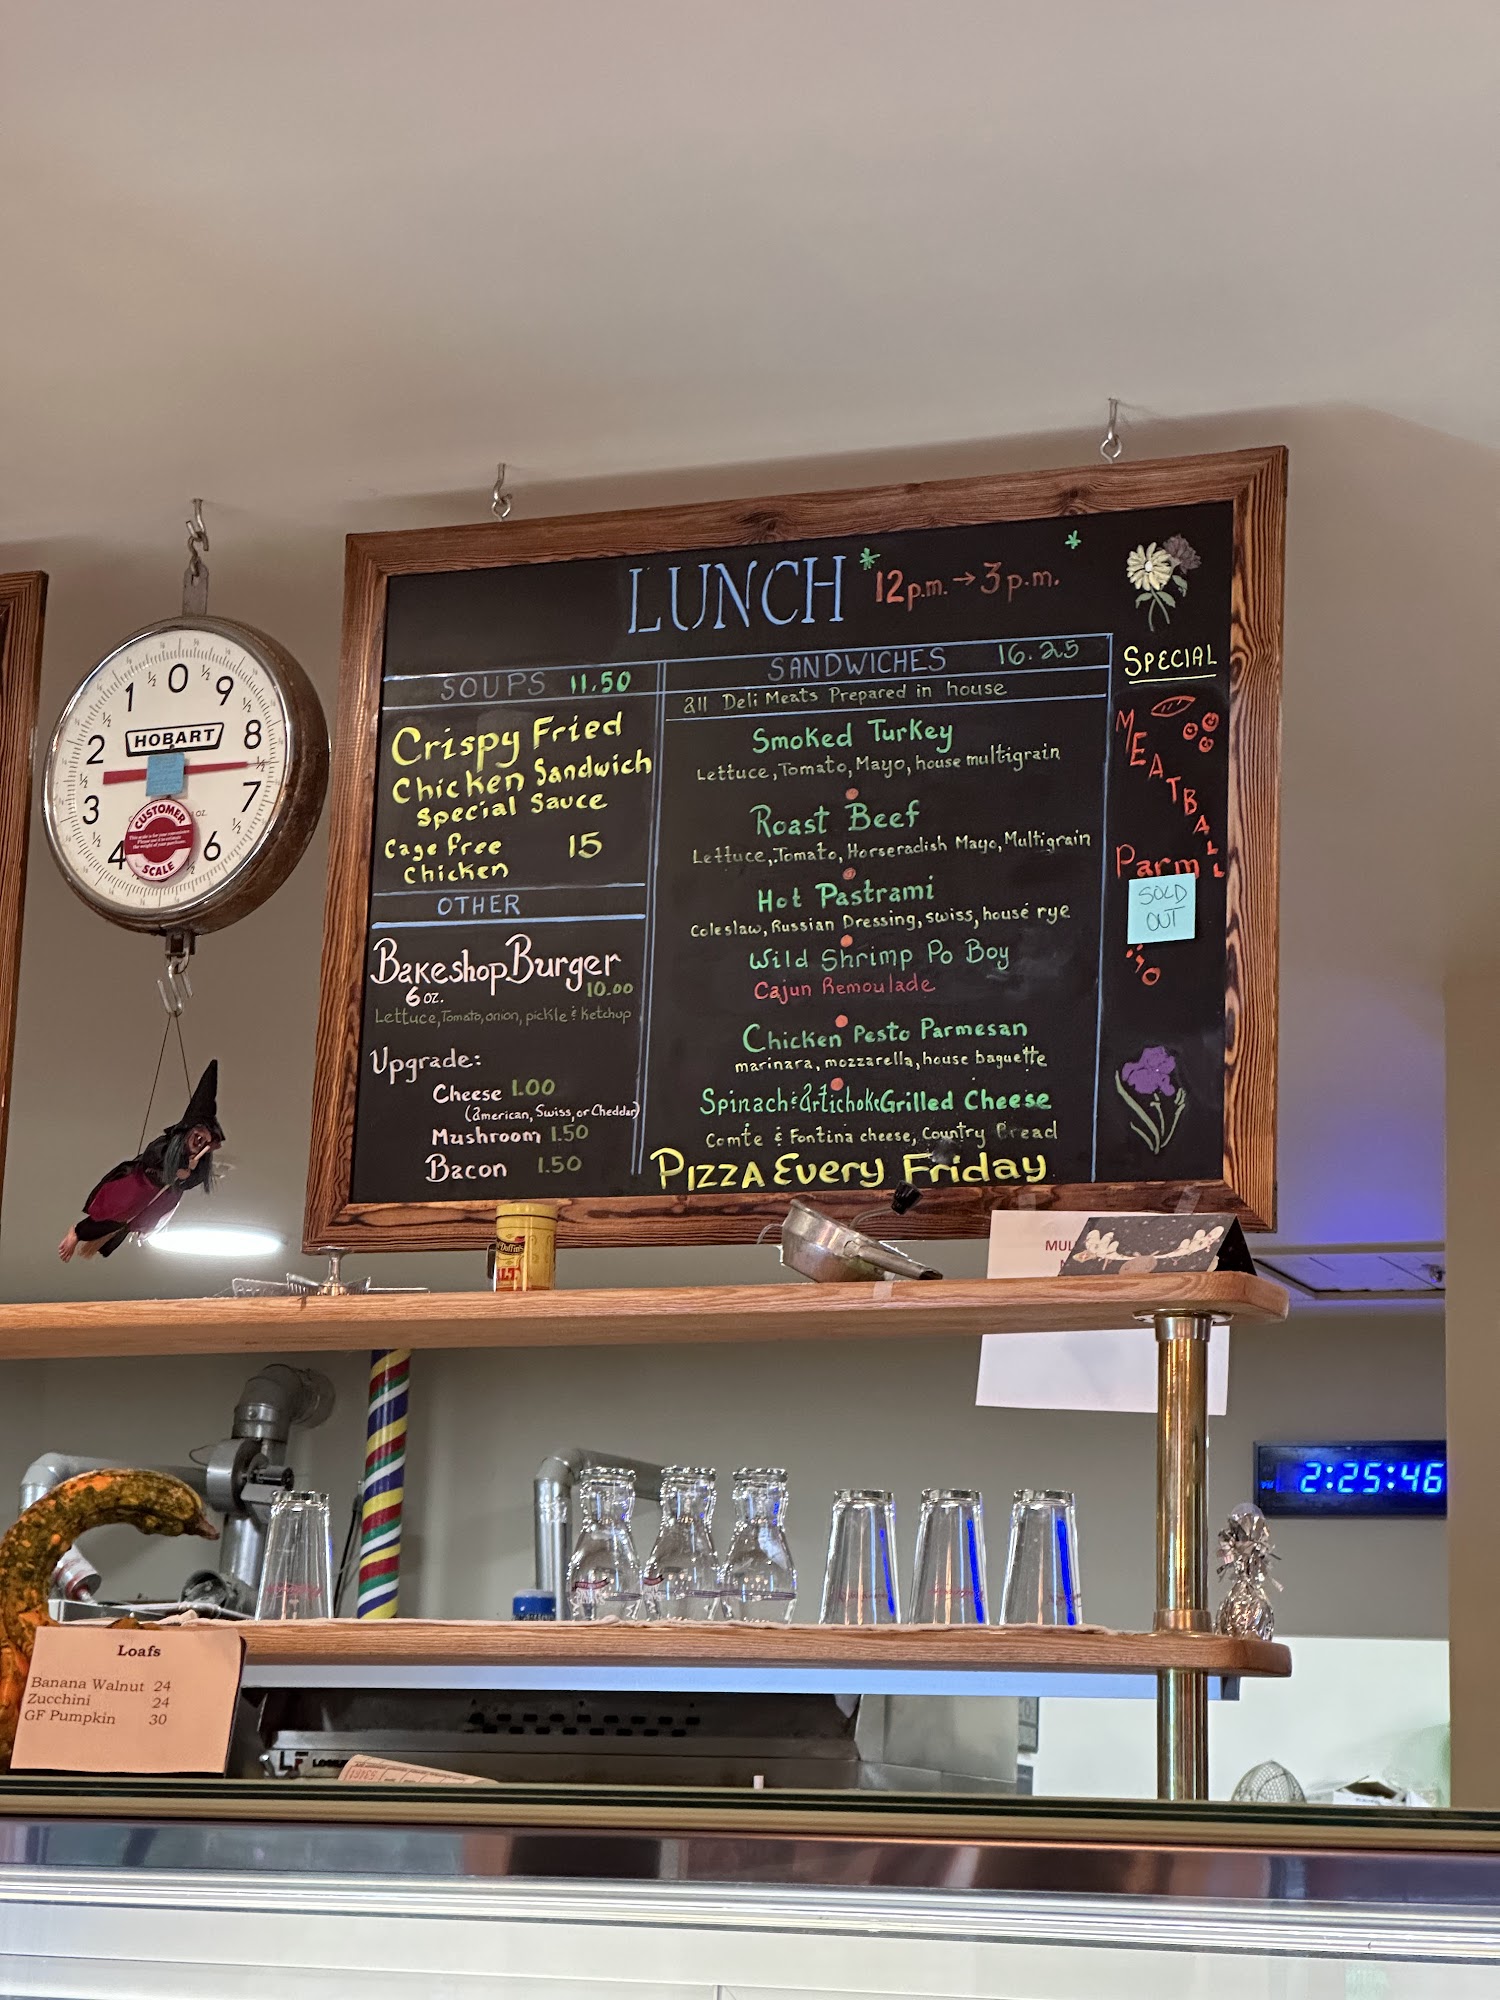 LUNCH 12p.m. → 3p.m.
SOUPS 11.50
Crispy Fried
Chicken Sandwich
Special Sauce
Cage Free 15
Chicken
OTHER
Bakeshop Burger
6 oz. 10.00
Lettuce, Tomato, onion, pickle & ketchup
Upgrade:
Cheese 1.00
(American, Swiss, or Cheddar)
Mushroom 1.50
Bacon 1.50
SANDWICHES 16.25
all Deli Meats Prepared in house
Smoked Turkey
Lettuce, Tomato, Mayo, house multigrain
Roast Beef
Lettuce, Tomato, Horseradish Mayo, Multigrain
Hot Pastrami
Coleslaw, Russian Dressing, swiss, house rye
Wild Shrimp Po Boy
Cajun Remoulade
Chicken Pesto Parmesan
marinara, mozzarella, house baguette
Spinach & Artichoke Grilled Cheese
Comte & Fontina cheese, Country Bread
PIZZA Every Friday
SPECIAL
MEATBALL
Parm
SOLD
OUT
0 9 8 7 6 4 3 2 1
HOBART
CUSTOMER
SCALE
MUL
2:25:46
Loafs
Banana Walnut 24
Zucchini 24
GF Pumpkin 30